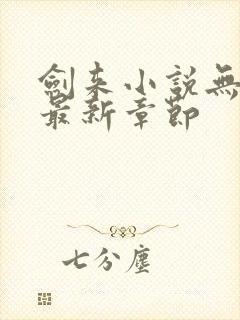 劍来小説無
最新章節
七分塵